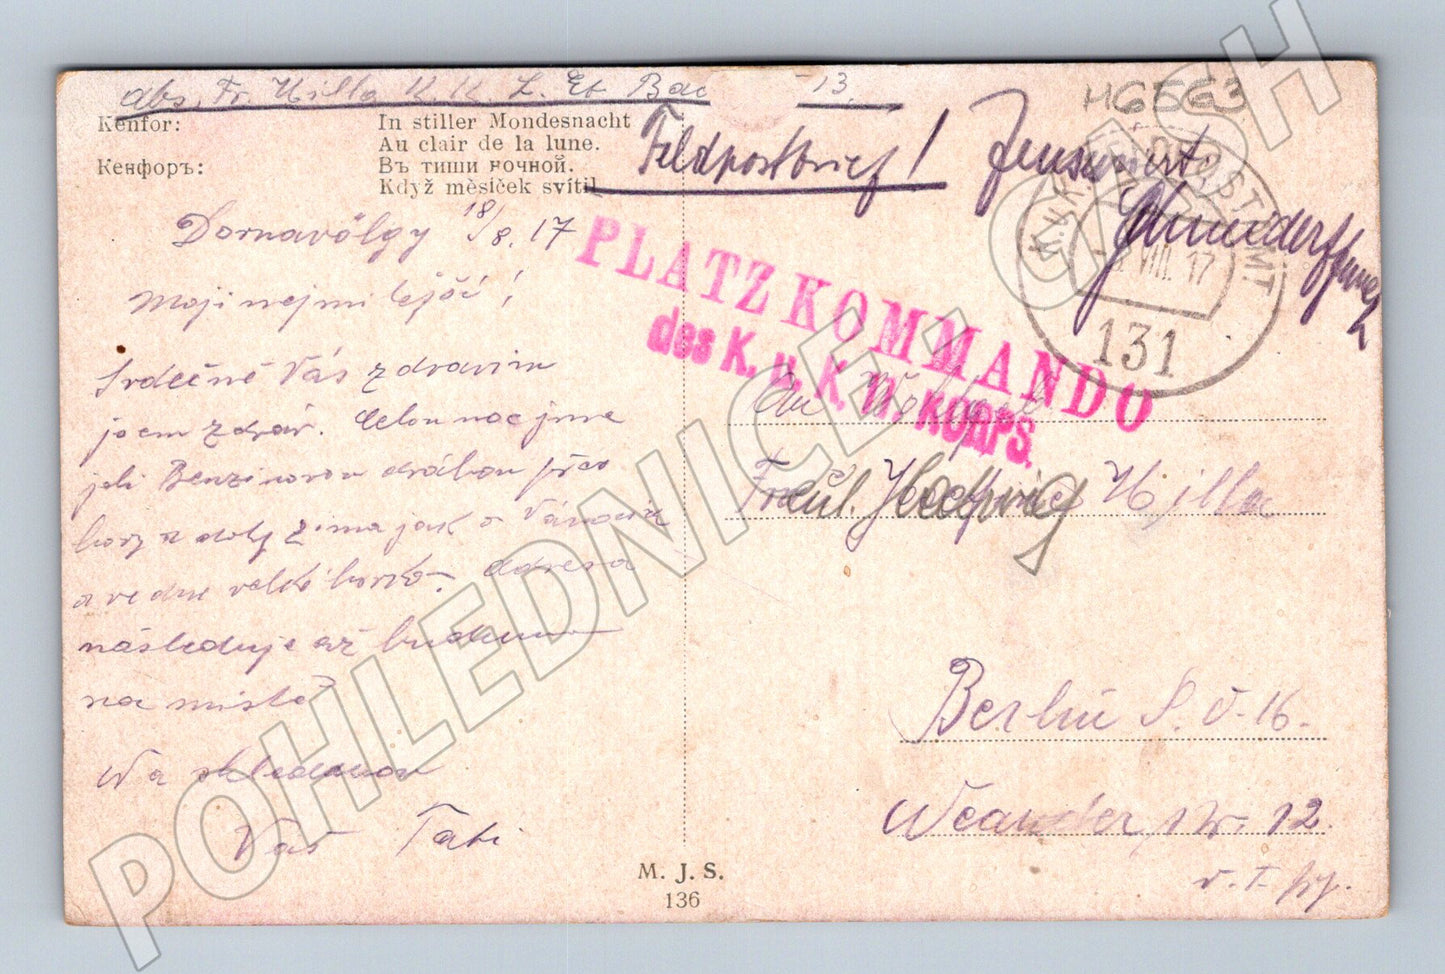 abs. Fr. Hilla K.K. L. Et. Bac 73.
H6563
Kenfor:
In stiller Mondesnacht
Au clair de la lune.
Кенфоръ:
Въ тиши ночной.
Když měsíček svítil
Feldpostbrief!
Zensuriert
K.u.K. FELDPOSTAMT
VIII. 17
131
PLATZKOMMANDO
des K. u. K. W. KORPS.
Dornavölgy 18/8. 17
Moji nejmilejší!
Srdečně Vás zdravím
jsem zdráv. Celou noc jsme
jeli Benzinovou dráhou přes
hory a doly zima jak o Vánocích
a ve dne velké horko. Adresa
následuje až budeme
na místě
Na shledanou
Váš Táti
Hilla
Berlin S. O-16.
Nr. 12.
M. J. S.
136
POHLEDNICE CASH